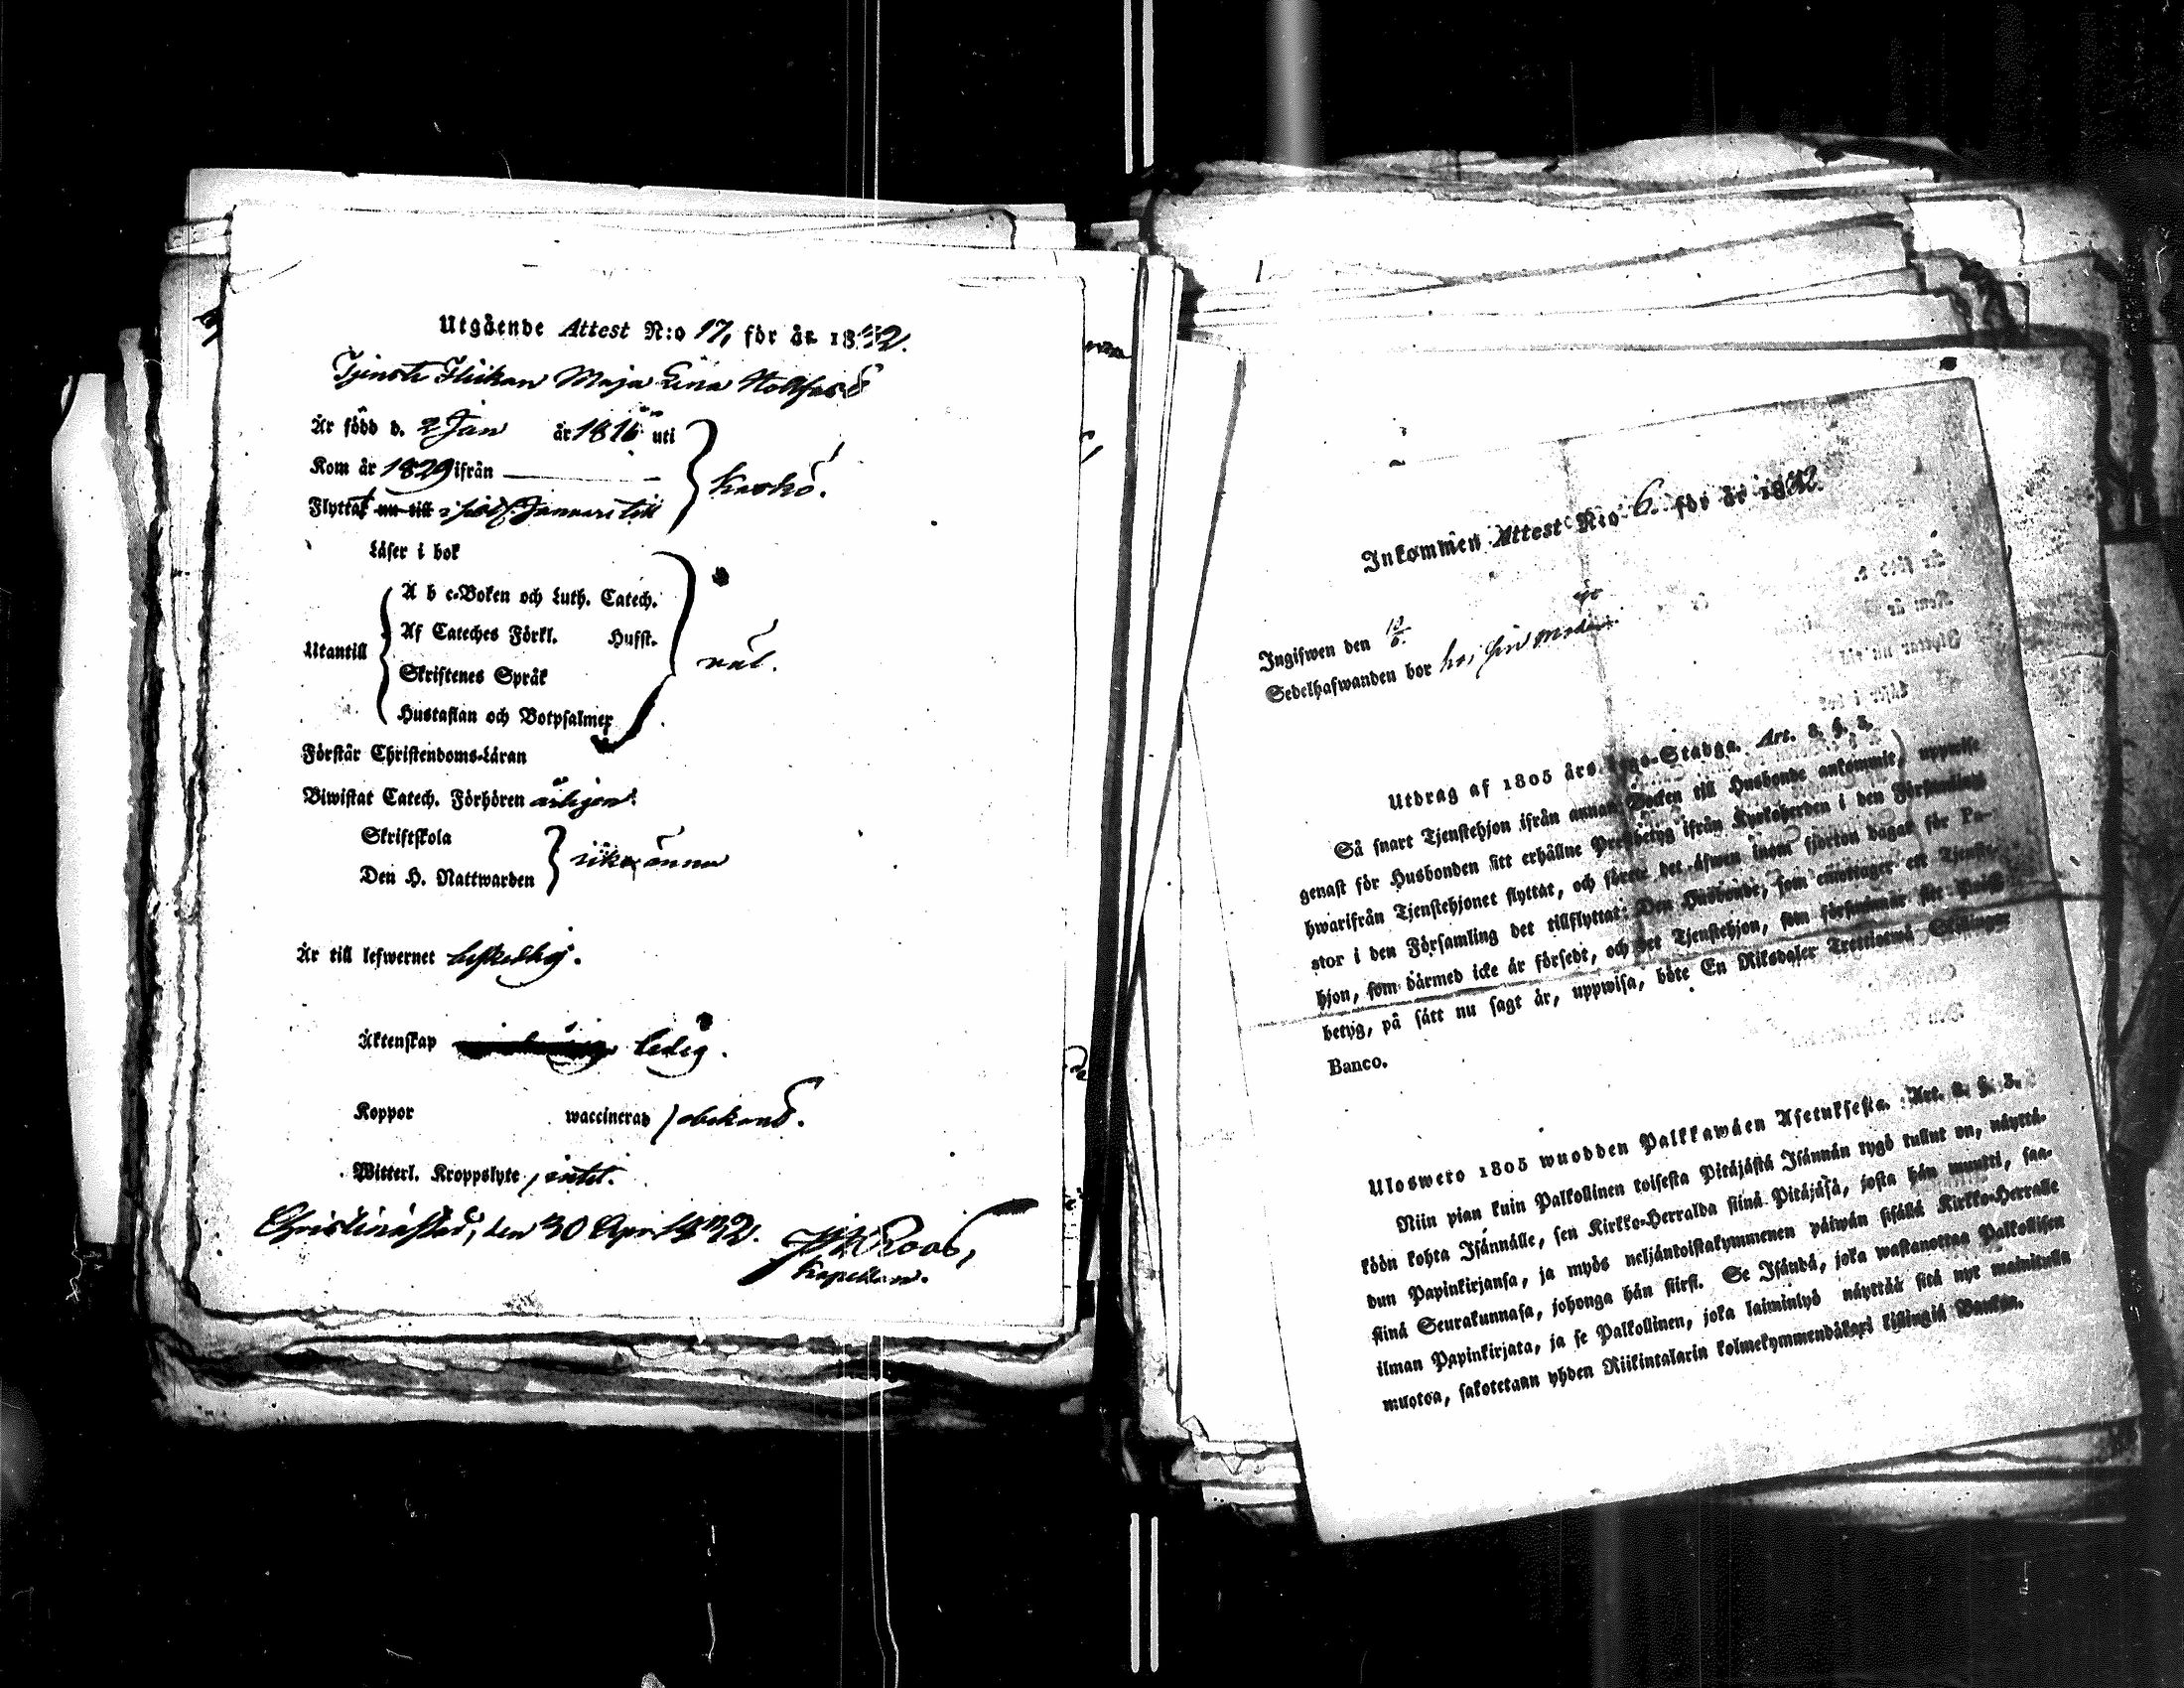 Utgående Attest N:o 17, för år 1832.
Tjenste Flickan Maja Lena
Är född d. 2 Jan år 1816 uti
Kom år 1829 ifrån
Kaskö.
Flyttat nu till Januari till
Läser i bok
A b c-Boken och Luth. Catech.
Af Cateches Förkl. Hufst.
Utantill
väl.
Skriftenes Språk
Hustaflan och Botpsalmer
Förstår Christendoms-Läran
Biwistat Catech. Förhören årligen.
Skriftskola
icke ännu
Den H. Nattwarden
Är till lefwernet beskedlig.
Äktenskap ledig.
Koppor waccinerad obekand.
Witterl. Kroppslyte, intet.
Christinestad, den 30 April 1832.
Roos,
Kapellan.
Inkommen Attest N:o 6. för år 1832.
Ingifwen den 10/6.
Sedelhafwanden bor hos sin
Utdrag af 1805 års Lego-Stadga. Art. 8. §. 3.
Så snart Tjenstehjon ifrån annan Socken till Husbonde ankommit, uppwise
genast för Husbonden sitt erhållne Prestbetyg ifrån Kyrkoherden i den Församling
hwarifrån Tjenstehjonet flyttat, och förete det äfwen inom fjorton dagar för Pa-
stor i den Församling det tillflyttat: Den Husbonde, som emottager ett Tjenste-
hjon, som därmed icke är försedt, och det Tjenstehjon, som försummar sitt Prest-
betyg, på sätt nu sagt är, uppwisa, böte En Riksdaler Trettiotwå Skillingar
Banco.
Ulosweto 1805 wuodden Palkkawäen Asetuksesta. Art. 8. §. 3.
Niin pian kuin Palkollinen toisesta Pitäjästä Isännän tygö tullut on, näyttä-
köön kohta Isännälle, sen Kirkko-Herralda siinä Pitäjäsä, josta hän muutti, saa-
dun Papinkirjansa, ja myös neljäntoistakymmenen päiwän sisällä Kirkko-Herralle
siinä Seurakunnasa, johonga hän siirsi. Se Isändä, joka wastanottaa Palkollisen
ilman Papinkirjata, ja se Palkollinen, joka laiminlyö näyttää sitä nyt mainitulla
muotoa, sakotetaan yhden Riikintalarin kolmekymmendäkaxi killingiä Bankon.